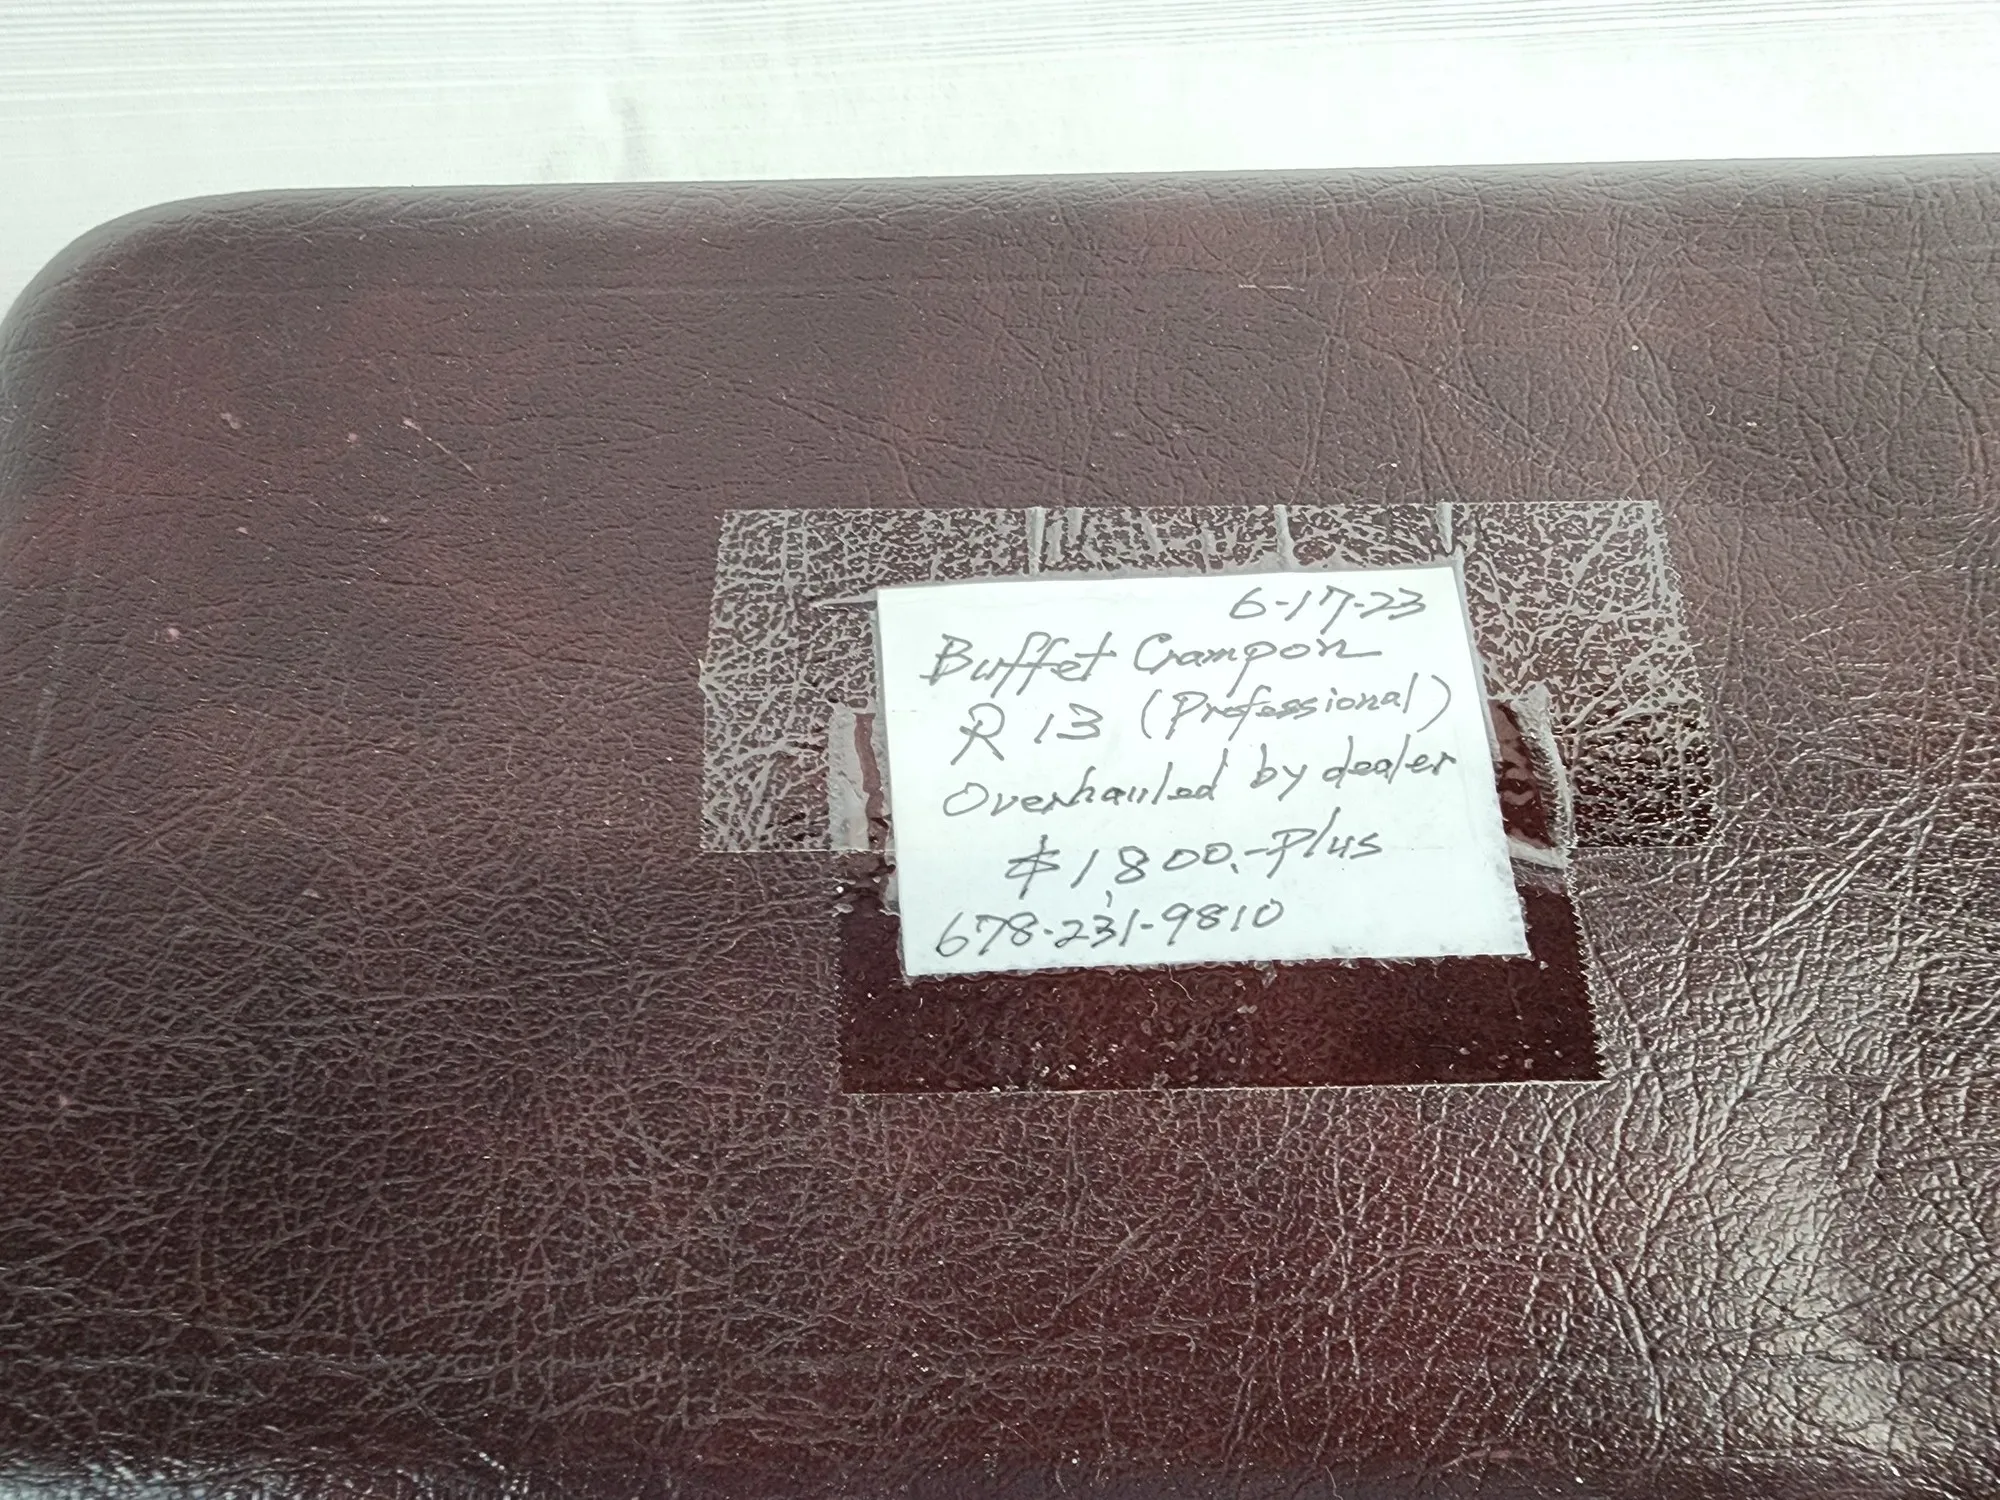 6-17-23
Buffet Crampon
R 13 (Professional)
Overhauled by dealer
$1,800.-Plus
678-231-9810